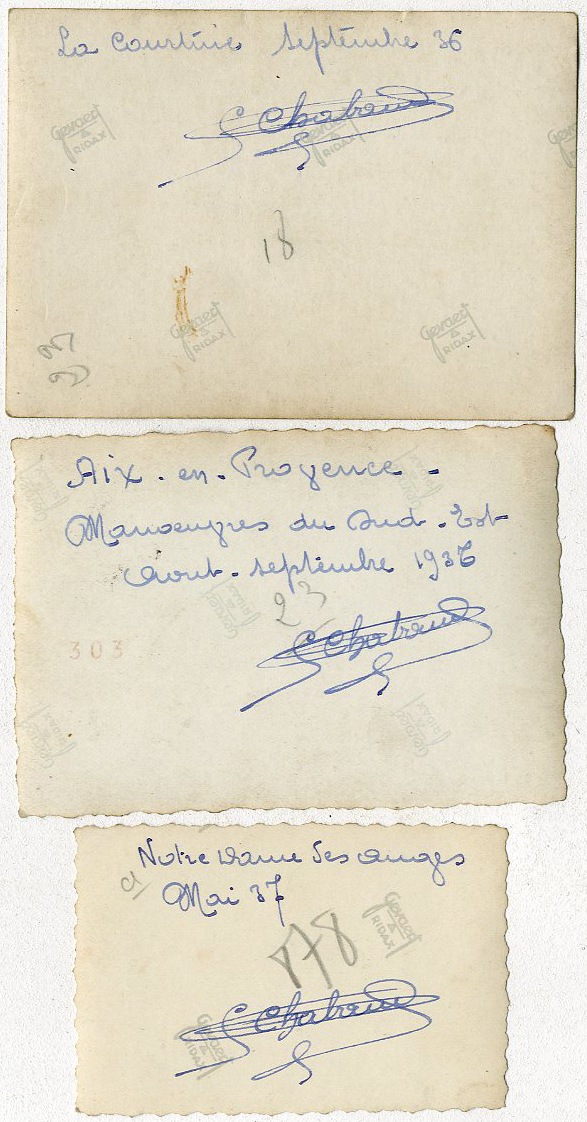 La Courtine septembre 36
G Chabaud
Gevaert
&
RIDAX
Gevaert
&
RIDAX
18
Gevaert
&
RIDAX
Gevaert
&
RIDAX
Aix-en-Provence -
Manoeuvres du Sud-Est
Aout-septembre 1936
23
G Chabaud
303
Notre Dame des anges
Mai 37
178
Gevaert
&
RIDAX
G Chabaud
Gevaert
&
RIDAX